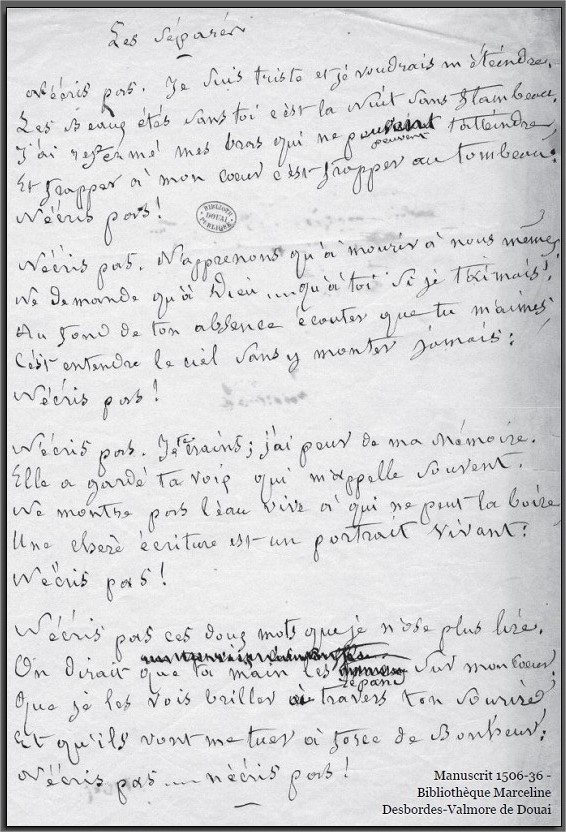 Les séparés
N'écris pas. Je suis triste et je voudrais m'éteindre.
Les Beaux étés sans toi c'est la Nuit sans flambeau.
J'ai refermé mes bras qui ne peuvent t'atteindre
Et frapper à mon cœur c'est frapper au tombeau:
N'écris pas!
BIBLIOTH. DOUAI PUBLIQUE
N'écris pas. N'apprenons qu'à mourir à nous mêmes
Ne demande qu'à Dieu....qu'à toi si je t'aimais!
Au fond de ton absence écouter que tu m'aimes
C'est entendre le ciel sans y monter jamais:
N'écris pas!
N'écris pas. Je te crains; j'ai peur de ma Mémoire.
Elle a gardé ta voix qui m'appelle souvent.
Ne montre pas l'eau vive à qui ne peut la boire
Une chere écriture est un portrait vivant:
N'écris pas!
N'écris pas ces doux mots que je n'ose plus lire.
On dirait que ta main les répand sur mon Cœur
Que je les vois briller à travers ton sourire
Et qu'ils vont me tuer à force de Bonheur:
N'écris pas....n'écris pas!
Manuscrit 1506-36 -
Bibliothèque Marceline
Desbordes-Valmore de Douai